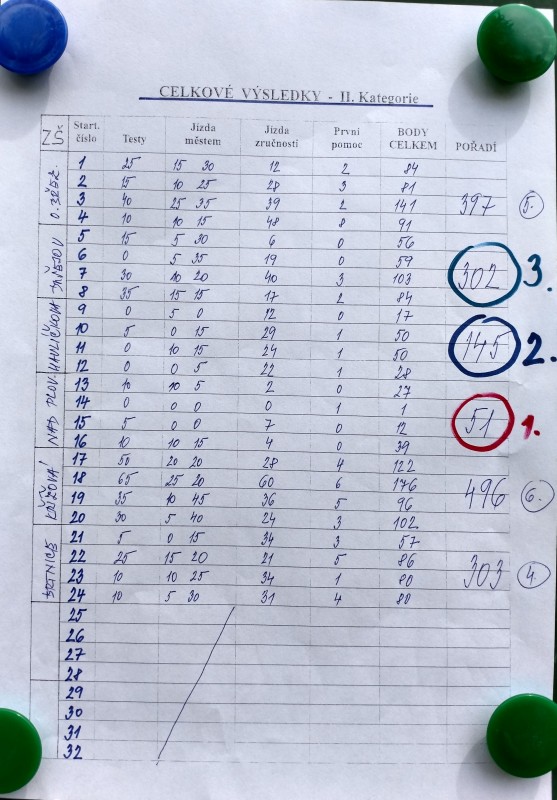 CELKOVÉ VÝSLEDKY - II. Kategorie
ZŠ Start. číslo Testy Jízda městem Jízda zručnosti První pomoc BODY CELKEM POŘADÍ
1 25 15 30 12 2 84
2 15 10 25 28 3 81
3 40 25 35 39 2 141 397 5.
4 10 10 15 48 8 91
5 15 5 30 6 0 56
6 0 5 35 19 0 59
7 30 10 20 40 3 103 302 3.
8 35 15 15 17 2 84
HAVLÍČKOVA
9 0 5 0 12 0 17
10 5 0 15 29 1 50
11 0 10 15 24 1 50 145 2.
12 0 0 5 22 1 28
NAD PLOV.
13 10 10 5 2 0 27
14 0 0 0 0 1 1
15 5 0 0 7 0 12 51 1.
16 10 10 15 4 0 39
KŘÍŽOVÁ
17 50 20 20 28 4 122
18 65 25 20 60 6 176
19 35 10 45 36 5 96 496 6.
20 30 5 40 24 3 102
BRTNICE
21 5 0 15 34 3 57
22 25 15 20 21 5 86
23 10 10 25 34 1 80 303 4.
24 10 5 30 31 4 80
25
26
27
28
29
30
31
32